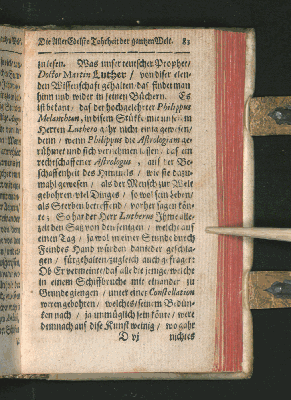 Die Aller Edelste Tohrheit der gantzen Welt. 83
zu lesen. Was unser teutscher Prophet/
Doctor Martin Luther / von diser elen-
den Wissenschaft gehalten/das findet man
hinn und wider in seinen Büchern. Es
ist bekant / das der hochgelehrter Philippus
Melanchton, in disem Stükke mit unserm
Herren Luthero gahr nicht einig gewesen/
denn / wenn Philippus die Astrologiam ge-
rühmet und sich vernehmen lassen/das ein
rechtschaffener Astrologus, aus der Be-
schaffenheit des Himmels / wie sie dazu-
mahl gewesen / als der Mensch zur Welt
gebohren/viel Dinges / so wol sein Leben/
als Sterben betreffend / vorher sagen kön-
te; So hat der Herr Lutherus Ihme alle-
zeit den Satz von den jenigen / welche auf
einen Tag / ja wol in einer Stunde durch
Feindes Hand würden danieder geschla-
gen / fürgehalten/zugleich auch gefraget:
Ob Er vermeinte/das alle die jenige/welche
in einem Schifbruche mit einander zu
Grunde giengen / unter einer Constellation
wären gebohren / welches/seinem Bedün-
ken nach / ja unmüglich sein könte/ were
demnach auf dise Kunst weinig / wo gahr
D vj nichtes